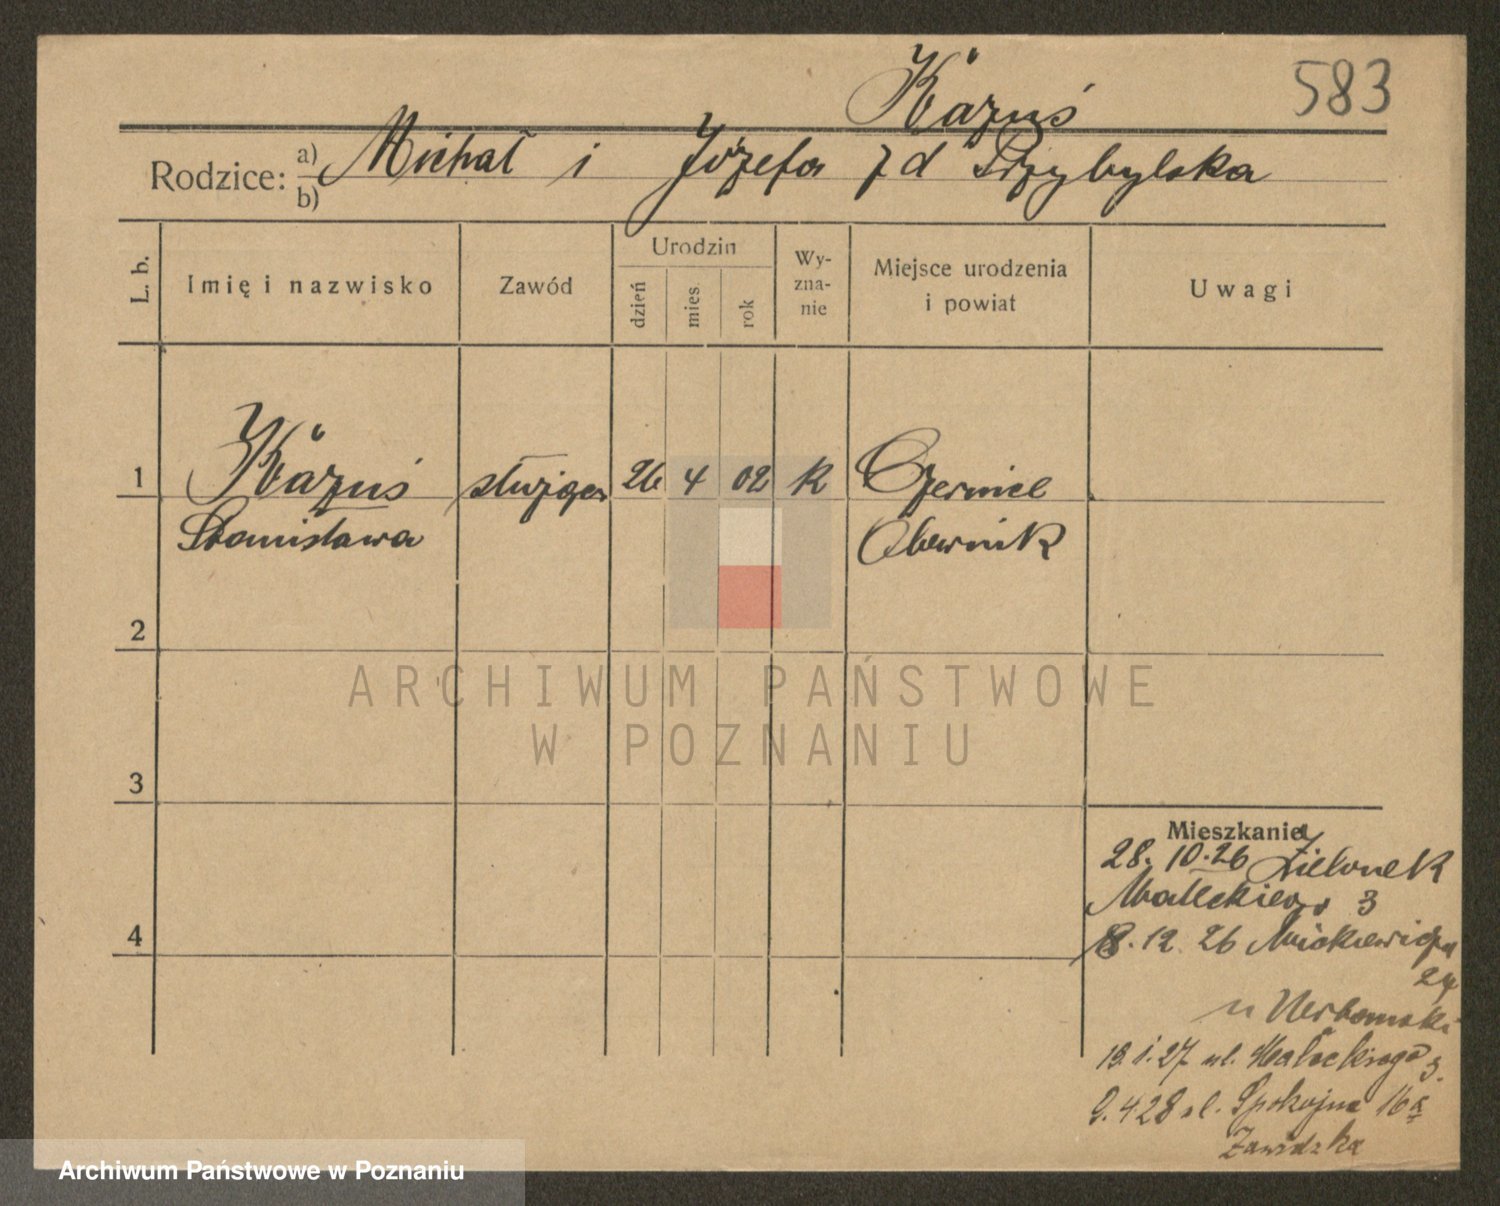 583
Kaźuś
Rodzice: a) Michał i Józefa zd Przybylska
b)
L. b.
Imię i nazwisko
Zawód
Urodzin
dzień
mies.
rok
Wy-
zna-
nie
Miejsce urodzenia
i powiat
Uwagi
1 Kaźuś służąca 26 4 02 K
Stanisława Obornik
2
3
4
Mieszkanie
28. 10. 26 Zielonek
Małeckiego 3
8. 12. 26 Mickiewicza
24
u
19. 1. 27 ul. Małeckiego 3.
9. 4 28 ul. Spokojna 16
Zawidzka
ARCHIWUM PAŃSTWOWE
W POZNANIU
Archiwum Państwowe w Poznaniu